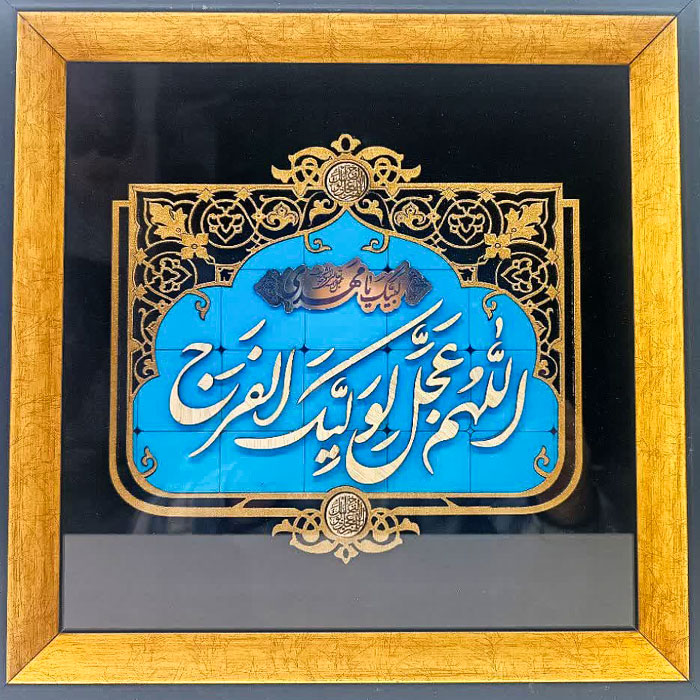 لبیک یا مهدی
اللّٰهُم عَجّل لِوَلیِّکَ الفَرَج